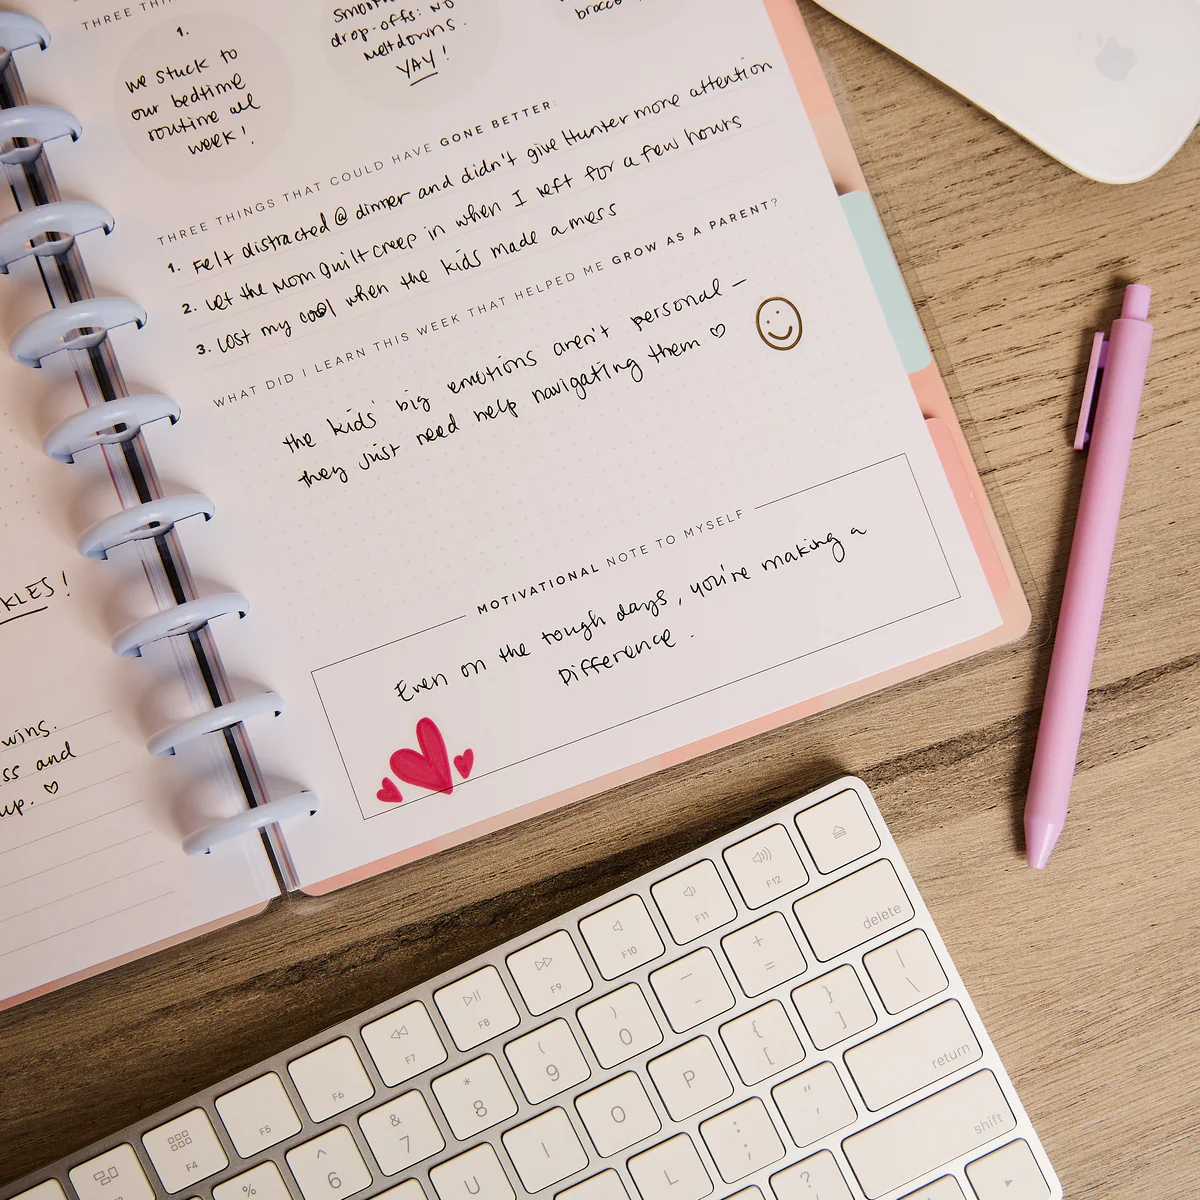 THREE THI
1.
we stuck to
our bedtime
routine all
week!
Smooth
drop-offs: no
meltdowns.
YAY!
brocco
THREE THINGS THAT COULD HAVE GONE BETTER:
1. Felt distracted @ dinner and didn't give Hunter more attention
2. Let the mom guilt creep in when I left for a few hours
3. Lost my cool when the kids made a mess
WHAT DID I LEARN THIS WEEK THAT HELPED ME GROW AS A PARENT?
the kids' big emotions aren't personal –
they just need help navigating them ♡
MOTIVATIONAL NOTE TO MYSELF
Even on the tough days, you're making a
Difference.
KLES!
wins.
ss and
up. ♡
F4
F5
F6
F7
F8
F9
F10
F11
F12
%
^ 6
& 7
* 8
( 9
) 0
_ -
+ =
delete
U
I
O
P
{ [
} ]
| \
L
: ;
" '
return
?
shift